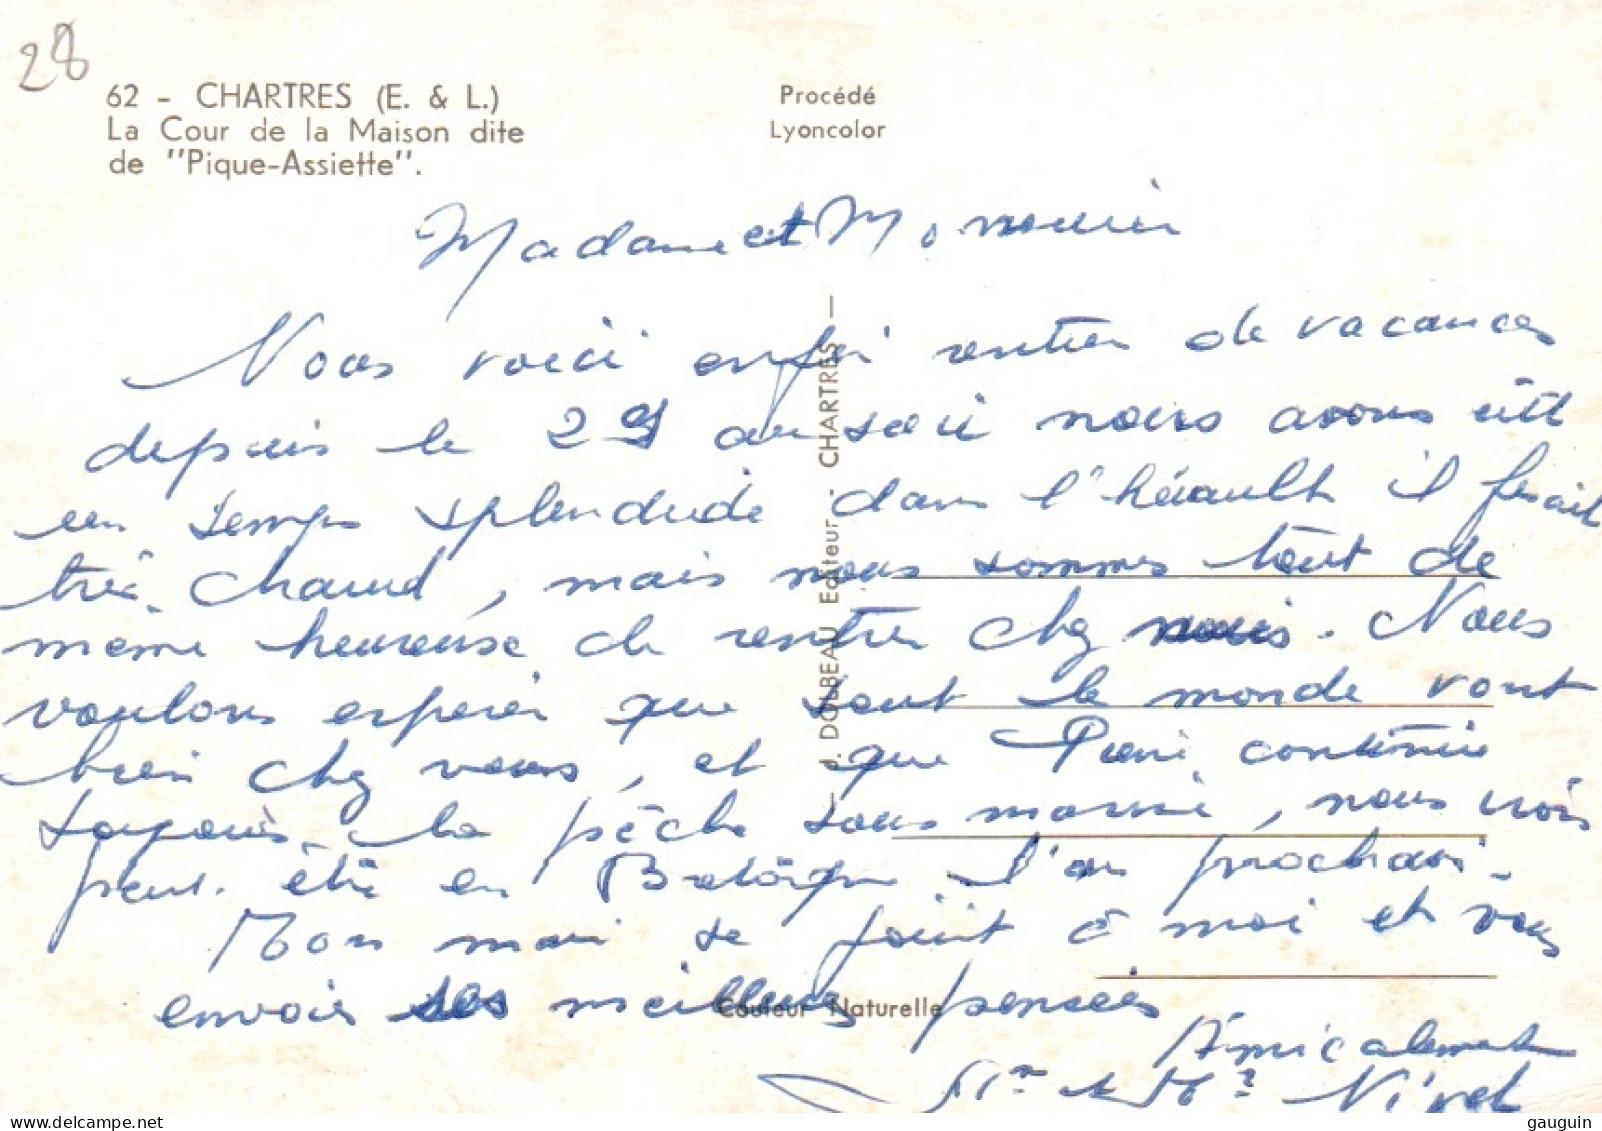 28
62 - CHARTRES (E. & L.)
La Cour de la Maison dite
de "Pique-Assiette".
Procédé
Lyoncolor
Madame et Monsieur
Nous voici enfin rentrer de vacances
depuis le 29 au soir nous avons
un temps splendide dans l'hérault il fesait
très chaud, mais nous sommes tout de
même heureuse de rentrer chez nous. Nous
voulons esperer que tout le monde vont
bien chez vous, et que continue
toujours la pêche sous marine, nous irons
peut. être en Bretagne l'an prochain.
Mon mari se joint à moi et vous
envoie ses meilleures pensées
Amicalement
Mr et Me
J. DOUBEAU Editeur - CHARTRES
Couleur Naturelle
https://www.delcampe.net
gauguin